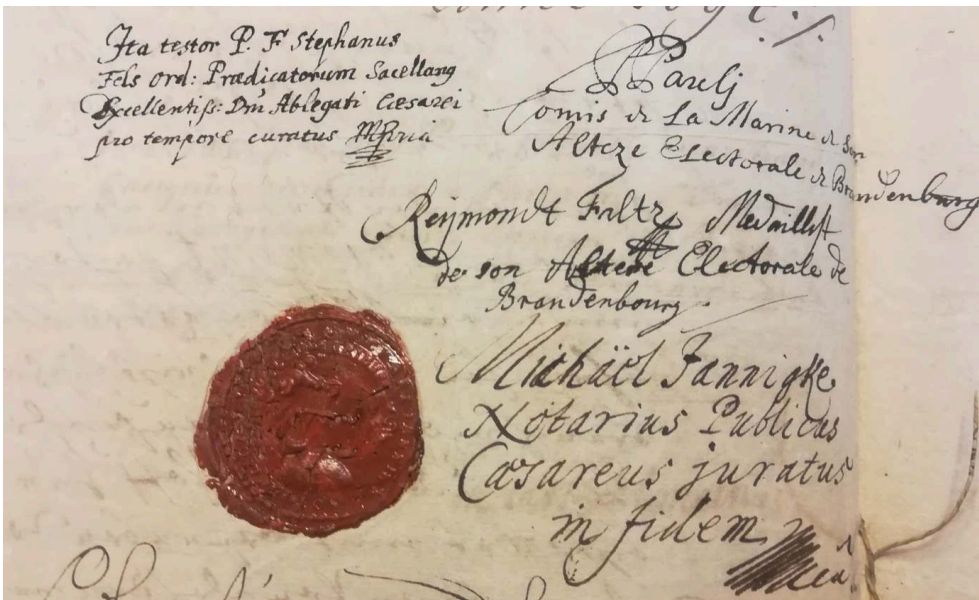 Ita testor P. F Stephanus
Fels ord: Prædicatorum Sacellang
Excellentiss: Dnī Ablegati Cæsarei
pro tempore curatus
Paulj
Comis de La Marine de son
Alteze Electorale de Brandenburg
Reijmondt Faltz Medaillist
de son Alteze Electorale de
Brandenbourg
Michäel Jannigke
Notarius Publicus
Cæsareus juratus
in fidem